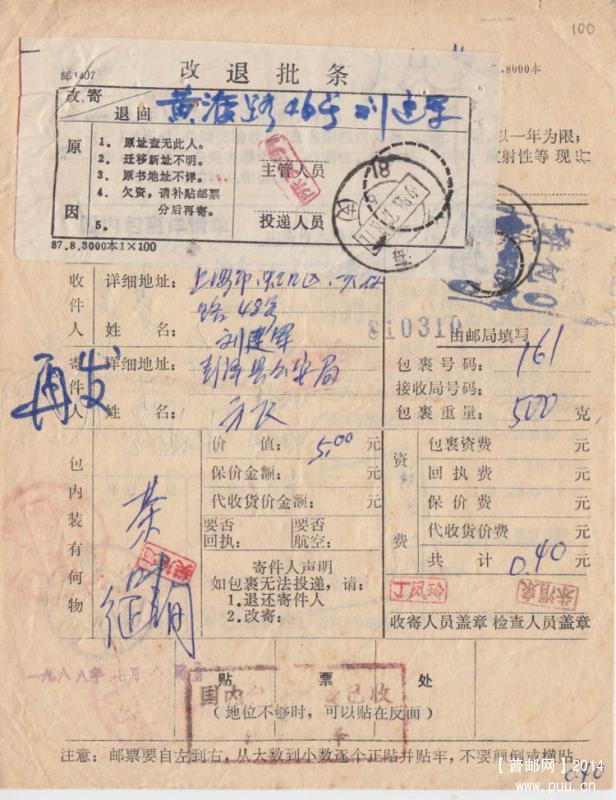 100
邮1407
改退批条
.8000本
改寄
退回 黄渡路46号刘建军
以一年为限；
放射性等
原因
1. 原址查无此人。
2. 迁移新址不明。
3. 原书地址不详。
4. 欠资，请补贴邮票
分后再寄。
5.
主管人员
投递人员
87.8.3000本1×100
收件人
详细地址：上海市虹口区
路48号
姓名：刘建军
810310
由邮局填写
寄件人
详细地址：彭泽县公安局
姓名：
包裹号码：161
接收局号码：
包裹重量：500克
再发
包内装有何物
茶叶
价值：5.00元
保价金额：元
代收货价金额：元
要否回执：
要否航空：
寄件人声明
如包裹无法投递，请：
1.退还寄件人
2.改寄：
资费
包裹资费 元
回执费 元
保价费 元
代收货价费 元
共计 0.40元
丁凤
收寄人员盖章 检查人员盖章
一九八八年七月八日
贴票处
国内 已收
（地位不够时，可以贴在反面）
注意：邮票要自左到右，从大数到小数逐个正贴并贴牢，不要剪倒或横贴
0.40
【普邮网】2014
www.puu.cn